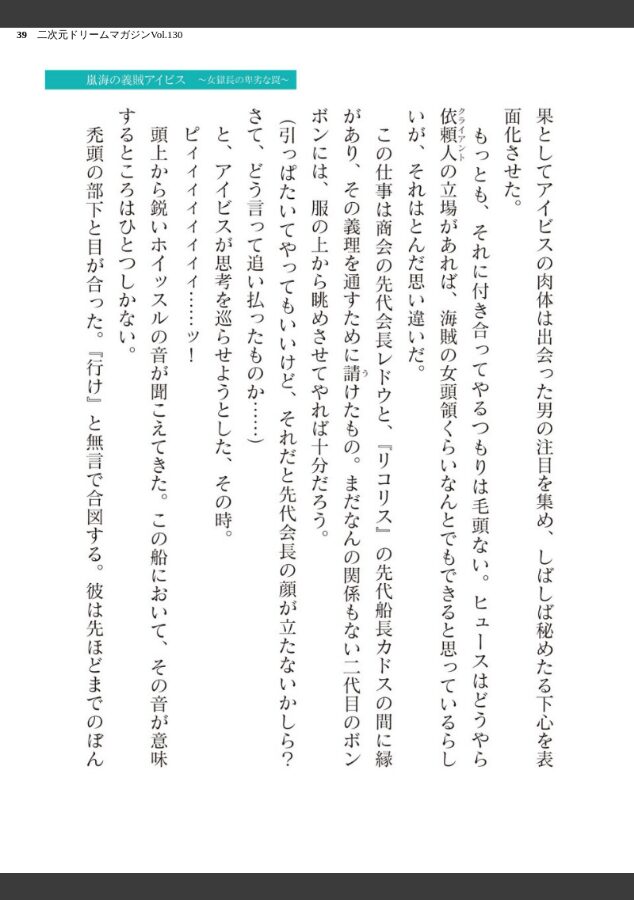 39 二次元ドリームマガジンVol.130
嵐海の義賊アイビス ～女獄長の卑劣な罠～
果としてアイビスの肉体は出会った男の注目を集め、しばしば秘めたる下心を表
面化させた。
もっとも、それに付き合ってやるつもりは毛頭ない。ヒュースはどうやら
依頼人の立場があれば、海賊の女頭領くらいなんとでもできると思っているらし
クライアント
いが、それはとんだ思い違いだ。
この仕事は商会の先代会長レドウと、『リコリス』の先代船長カドスの間に縁
があり、その義理を通すために請けたもの。まだなんの関係もない二代目のボン
う
ボンには、服の上から眺めさせてやれば十分だろう。
（引っぱたいてやってもいいけど、それだと先代会長の顔が立たないかしら？
さて、どう言って追い払ったものか……）
と、アイビスが思考を巡らせようとした、その時。
ピィィィィィィィ……ッ！
頭上から鋭いホイッスルの音が聞こえてきた。この船において、その音が意味
するところはひとつしかない。
禿頭の部下と目が合った。『行け』と無言で合図する。彼は先ほどまでのぽん